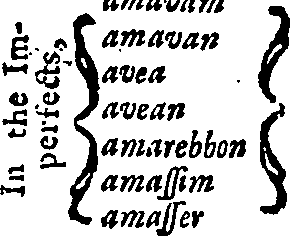 In the Im-
perfects,
amavam
amavan
avea
avean
amarebbon
amaſſim
amaſſer